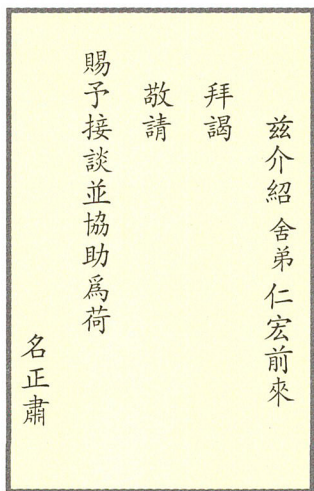 茲介紹舍弟仁宏前來
拜謁
敬請
賜予接談並協助為荷
名正肅